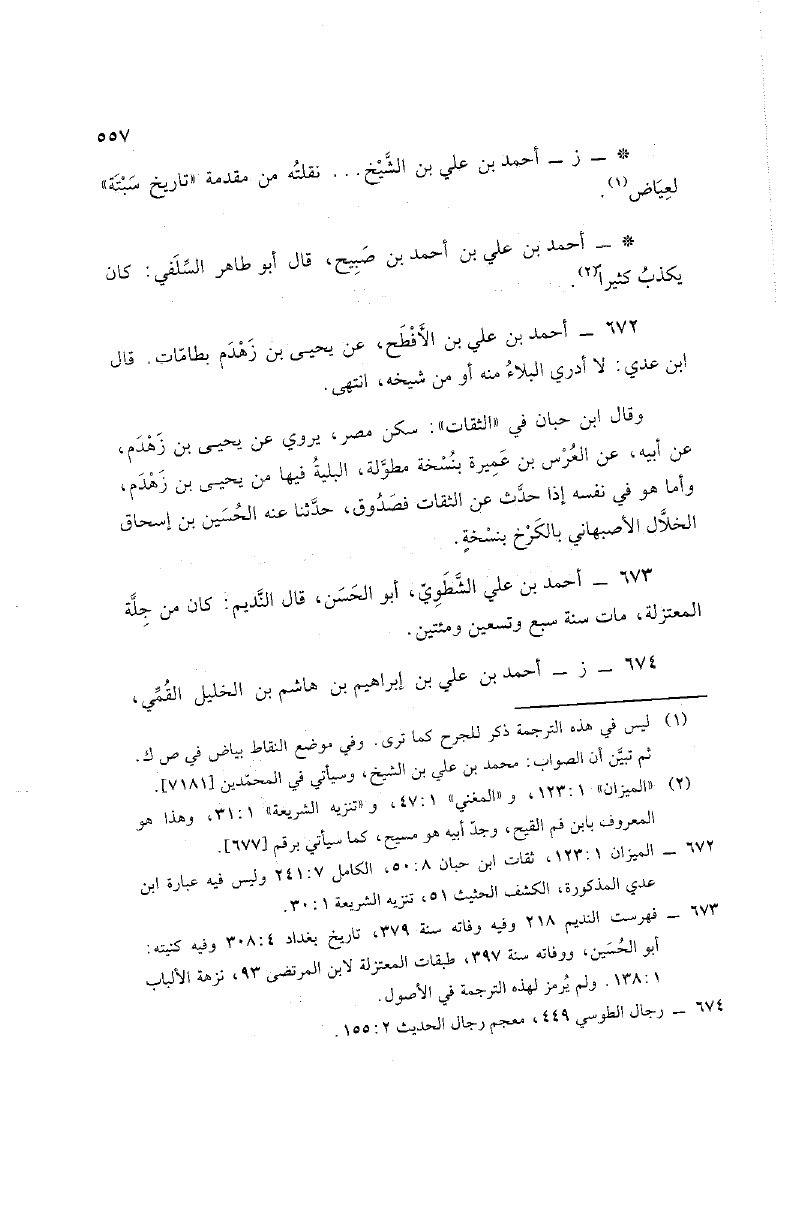 ٥٥٧
* — ز — أحمد بن علي بن الشَّيْخ... نقلتُه من مقدمة «تاريخ سَبْتَة»
لعِيَاض(١).
* — أحمد بن علي بن أحمد بن صَبِيح، قال أبو طاهر السِّلَفي: كان
يكذبُ كثيراً(٢).
٦٧٢ — أحمد بن علي بن الأَفْطَح، عن يحيى بن زَهْدَم بطامّات. قال
ابن عدي: لا أدري البلاءُ منه أو من شيخه، انتهى.
وقال ابن حبان في «الثقات»: سكن مصر، يروي عن يحيى بن زَهْدَم،
عن أبيه، عن العُرْس بن عَمِيرة بنُسْخة مطوَّلة، البليةُ فيها من يحيى بن زَهْدَم،
وأما هو في نفسه إذا حدَّث عن الثقات فصَدُوق، حدَّثنا عنه الحُسَين بن إسحاق
الخلَّال الأصبهاني بالكَرْخ بنسْخةٍ.
٦٧٣ — أحمد بن علي الشَّطَوِيّ، أبو الحَسَن، قال النَّديم: كان من جِلَّة
المعتزلة، مات سنة سبع وتسعين ومئتين.
٦٧٤ — ز — أحمد بن علي بن إبراهيم بن هاشم بن الخليل القُمِّي،
(١) ليس في هذه الترجمة ذكر للجرح كما ترى. وفي موضع النقاط بياض في ص ك.
ثم تبيَّن أن الصواب: محمد بن علي بن الشيخ، وسيأتي في المحمَّدين [٧١٨١].
(٢) «الميزان» ١:١٢٣، و «المغني» ١:٤٧، و «تنزيه الشريعة» ١:٣١، وهذا هو
المعروف بابن فم القيح، وجدّ أبيه هو مسيح، كما سيأتي برقم [٦٧٧].
٦٧٢ — الميزان ١:١٢٣، ثقات ابن حبان ٨:٥٠، الكامل ٧:٢٤١ وليس فيه عبارة ابن
عدي المذكورة، الكشف الحثيث ٥١، تنزيه الشريعة ١:٣٠.
٦٧٣ — فهرست النديم ٢١٨ وفيه وفاته سنة ٣٧٩، تاريخ بغداد ٤:٣٠٨ وفيه كنيته:
أبو الحُسَين، ووفاته سنة ٣٩٧، طبقات المعتزلة لابن المرتضى ٩٣، نزهة الألباب
١:١٣٨. ولم يُرمز لهذه الترجمة في الأصول.
٦٧٤ — رجال الطوسي ٤٤٩، معجم رجال الحديث ٢:١٥٥.